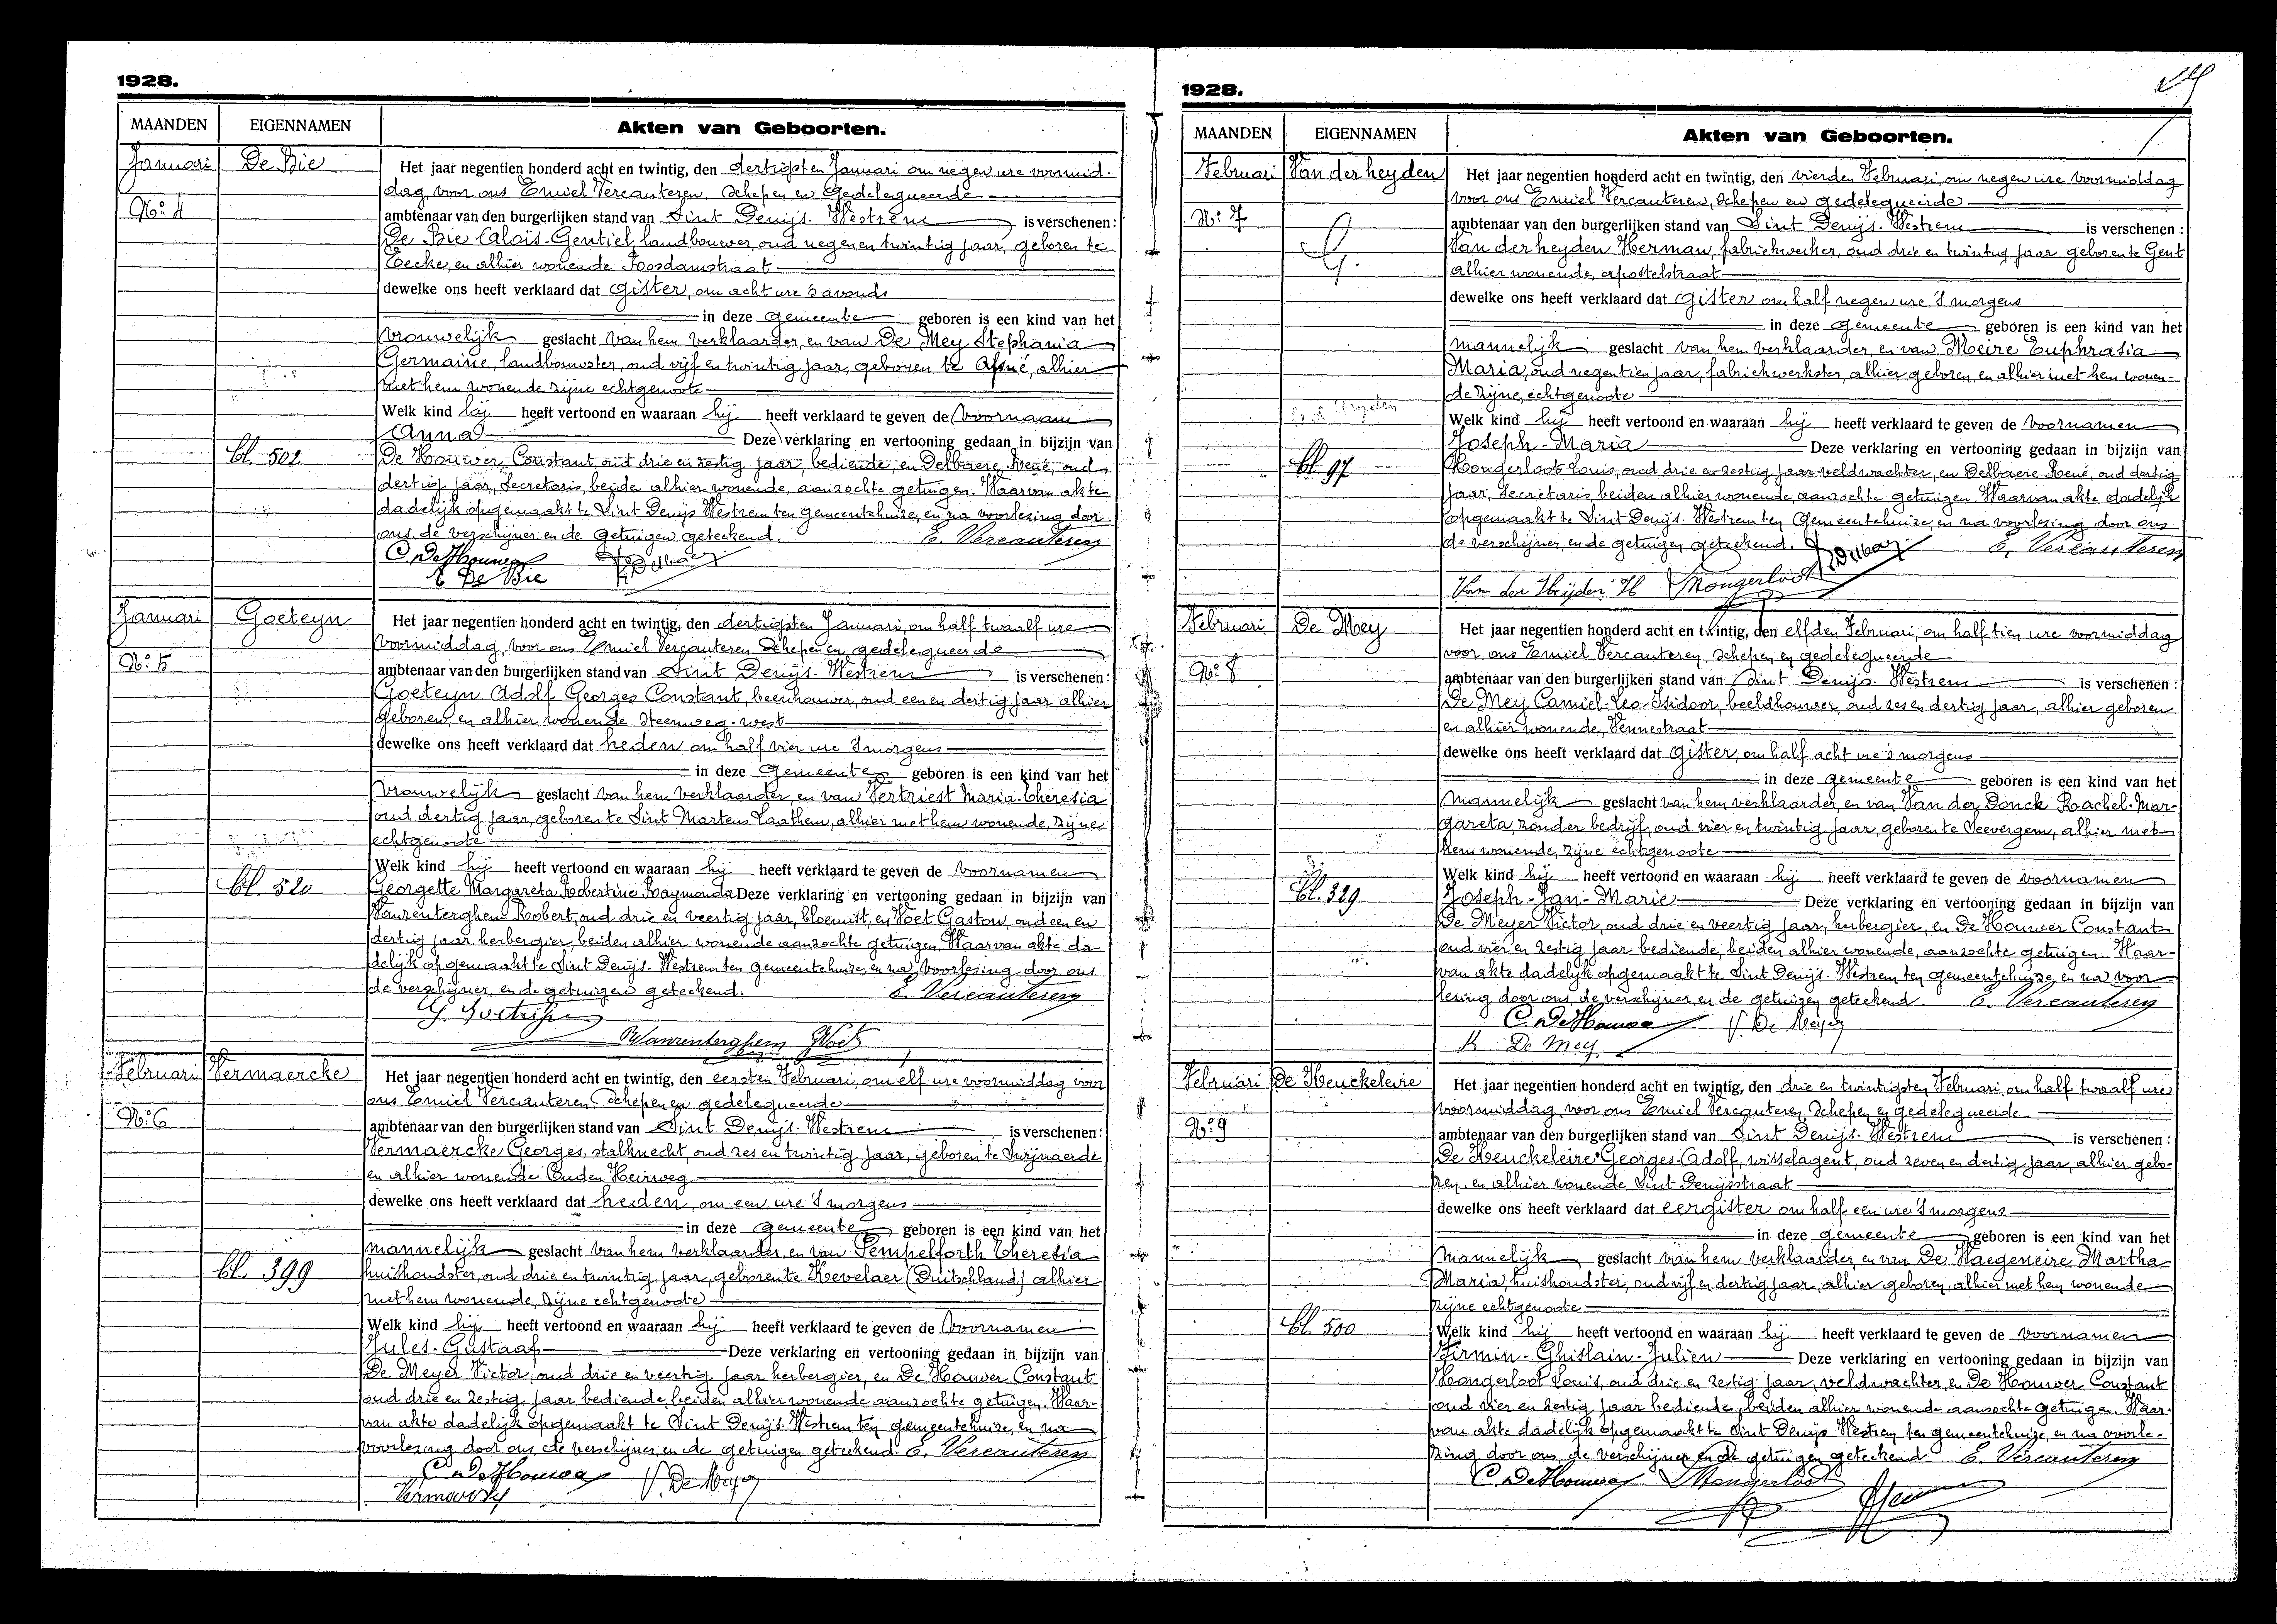 1928.
MAANDEN EIGENNAMEN Akten van Geboorten.
Januari De Bie
No: 4
Het jaar negentien honderd acht en twintig, den dertigsten Januari om negen ure voormid-
dag, voor ons Emiel Vercauteren Schepen en Gedelegueerde
ambtenaar van den burgerlijken stand van Sint Denijs-Westrem is verschenen:
De Bie Aloïs-Gentiel, landbouwer, oud negen en twintig jaar, geboren te
Eecke, en alhier wonende Loosdamstraat
dewelke ons heeft verklaard dat gister, om acht ure 's avonds
in deze gemeente geboren is een kind van het
vrouwelijk geslacht van hem verklaarder, en van De Mey Stephania
Germaine, landbouwster, oud vijf en twintig jaar, geboren te Afsné, alhier
met hem wonende zijne echtgenoote
Welk kind hij heeft vertoond en waaraan hij heeft verklaard te geven de voornaam
Anna Deze verklaring en vertooning gedaan in bijzijn van
bl. 502
De Houwer, Constant, oud drie en zestig jaar, bediende, en Delbaere René, oud
dertig jaar, Secretaris, beiden alhier wonende, aanzochte getuigen. Waarvan akte
dadelijk opgemaakt te Sint Denijs Westrem ten gemeentehuize, en na voorlezing door
ons de verschijner en de getuigen geteekend. E. Vercauteren
C. De Houwer R Delbaere
A De Bie
Januari Goeteyn
No: 5
Het jaar negentien honderd acht en twintig, den dertigsten Januari, om half twaalf ure
voormiddag, voor ons Emiel Vercauteren Schepen en gedelegueerde
ambtenaar van den burgerlijken stand van Sint Denijs-Westrem is verschenen:
Goeteyn Adolf Georges Constant, beenhouwer, oud een en dertig jaar alhier
geboren, en alhier wonende Steenweg-west
dewelke ons heeft verklaard dat heden om half vier ure 's morgens
in deze gemeente geboren is een kind van het
vrouwelijk geslacht van hem verklaarder, en van Vertriest Maria-Theresia
oud dertig jaar, geboren te Sint Martens Laathem, alhier met hem wonende, zijne
echtgenoote
Welk kind hij heeft vertoond en waaraan hij heeft verklaard te geven de voornamen
bl. 520
Georgette Margareta Robertine Raymonda Deze verklaring en vertooning gedaan in bijzijn van
Vanrenterghem Robert, oud drie en veertig jaar, bloemist, en Voet Gaston, oud een en
dertig jaar herbergier, beiden alhier wonende aanzochte getuigen. Waarvan akte da-
delijk opgemaakt te Sint Denijs-Westrem ten gemeentehuize, en na voorlezing door ons
de verschijner, en de getuigen geteekend. E. Vercauteren
RVanrenterghem GVoet
Februari Vermaercke
No: 6
Het jaar negentien honderd acht en twintig, den eersten Februari, om elf ure voormiddag voor
ons Emiel Vercauteren Schepen en gedelegueerde
ambtenaar van den burgerlijken stand van Sint Denijs-Westrem is verschenen:
Vermaercke Georges, stalknecht, oud zes en twintig jaar, geboren te Swijnaerde
en alhier wonende Ouden Heirweg
dewelke ons heeft verklaard dat heden, om een ure 's morgens
in deze gemeente geboren is een kind van het
mannelijk geslacht van hem verklaarder, en van Pempelforth Theresia
bl. 399
huishoudster, oud drie en twintig jaar, geboren te Kevelaer (Duitschland) alhier
met hem wonende, zijne echtgenoote
Welk kind hij heeft vertoond en waaraan hij heeft verklaard te geven de voornamen
Jules-Gustaaf Deze verklaring en vertooning gedaan in bijzijn van
De Meyer Victor, oud drie en veertig jaar herbergier, en De Houwer Constant
oud drie en zestig jaar bediende, beiden alhier wonende aanzochte getuigen. Waar-
van akte dadelijk opgemaakt te Sint Denijs-Westrem ten gemeentehuize, en na
voorlezing door ons, de verschijner en de getuigen geteekend. E. Vercauteren
C. De Houwer V. De Meyer
1928.
MAANDEN EIGENNAMEN Akten van Geboorten.
Februari Van der heyden
No: 7
Het jaar negentien honderd acht en twintig, den vierden Februari, om negen ure voormiddag
voor ons Emiel Vercauteren, Schepen en gedelegueerde
ambtenaar van den burgerlijken stand van Sint Denijs-Westrem is verschenen:
Van der heyden Herman, fabriekwerker, oud drie en twintig jaar geboren te Gent
alhier wonende, apostelstraat
dewelke ons heeft verklaard dat gister om half negen ure 's morgens
in deze gemeente geboren is een kind van het
mannelijk geslacht van hem verklaarder, en van Meire Euphrasia
Maria, oud negentien jaar, fabriekwerkster, alhier geboren, en alhier met hem wonen-
de zijne, echtgenoote
Welk kind hij heeft vertoond en waaraan hij heeft verklaard te geven de voornamen
Joseph-Maria Deze verklaring en vertooning gedaan in bijzijn van
bl. 97
Hongerloot Louis, oud drie en zestig jaar veldwachter, en Delbaere René, oud dertig
jaar, Secretaris, beiden alhier wonende, aanzochte getuigen. Waarvan akte dadelijk
opgemaakt te Sint Denijs-Westrem ten Gemeentehuize, en na voorlezing door ons
de verschijner, en de getuigen geteekend. R Delbaere E. Vercauteren
Van der Heijden H Hongerloot
Februari De Mey
No: 8
Het jaar negentien honderd acht en twintig, den elfden Februari, om half tien ure voormiddag
voor ons Emiel Vercauteren, Schepen en gedelegueerde
ambtenaar van den burgerlijken stand van Sint Denijs-Westrem is verschenen:
De Mey Camiel-Leo-Isidoor, beeldhouwer, oud zes en dertig jaar, alhier geboren
en alhier wonende, Vennestraat
dewelke ons heeft verklaard dat gister, om half acht ure 's morgens
in deze gemeente geboren is een kind van het
mannelijk geslacht van hem verklaarder, en van Van der Donck Raachel-Mar-
gareta, zonder bedrijf, oud vier en twintig jaar, geboren te Seevergem, alhier met
hem wonende, zijne echtgenoote
Welk kind hij heeft vertoond en waaraan hij heeft verklaard te geven de voornamen
bl. 329
Joseph-Jan-Marie Deze verklaring en vertooning gedaan in bijzijn van
De Meyer Victor, oud drie en veertig jaar, herbergier, en De Houwer Constant
oud vier en zestig jaar bediende, beiden alhier wonende, aanzochte getuigen. Waar-
van akte dadelijk opgemaakt te Sint Denijs-Westrem ten gemeentehuize, en na voor-
lezing door ons, de verschijner, en de getuigen geteekend. E. Vercauteren
C. De Houwer V. De Meyer
K De Mey
Februari De Keuckeleire
No: 9
Het jaar negentien honderd acht en twintig, den drie en twintigsten Februari, om half twaalf ure
voormiddag, voor ons Emiel Vercauteren Schepen en gedelegueerde
ambtenaar van den burgerlijken stand van Sint Denijs-Westrem is verschenen:
De Keuckeleire Georges-Adolf, wisselagent, oud zeven en dertig jaar, alhier gebo-
ren, en alhier wonende Sint Denijsstraat
dewelke ons heeft verklaard dat eergister om half een ure 's morgens
in deze gemeente geboren is een kind van het
mannelijk geslacht van hem verklaarder en van De Waegeneire Martha
Maria, huishoudster, oud vijf en dertig jaar, alhier geboren, alhier met hem wonende
zijne echtgenoote
bl. 500
Welk kind hij heeft vertoond en waaraan hij heeft verklaard te geven de voornamen
Firmin-Ghislain-Julien Deze verklaring en vertooning gedaan in bijzijn van
Hongerloot Louis, oud drie en zestig jaar, veldwachter, en De Houwer Constant
oud vier en zestig jaar bediende, beiden alhier wonende aanzochte getuigen. Waar-
van akte dadelijk opgemaakt te Sint Denijs Westrem ten gemeentehuize, en na voorle-
zing door ons, de verschijner en de getuigen geteekend E. Vercauteren
C. De Houwer Hongerloot